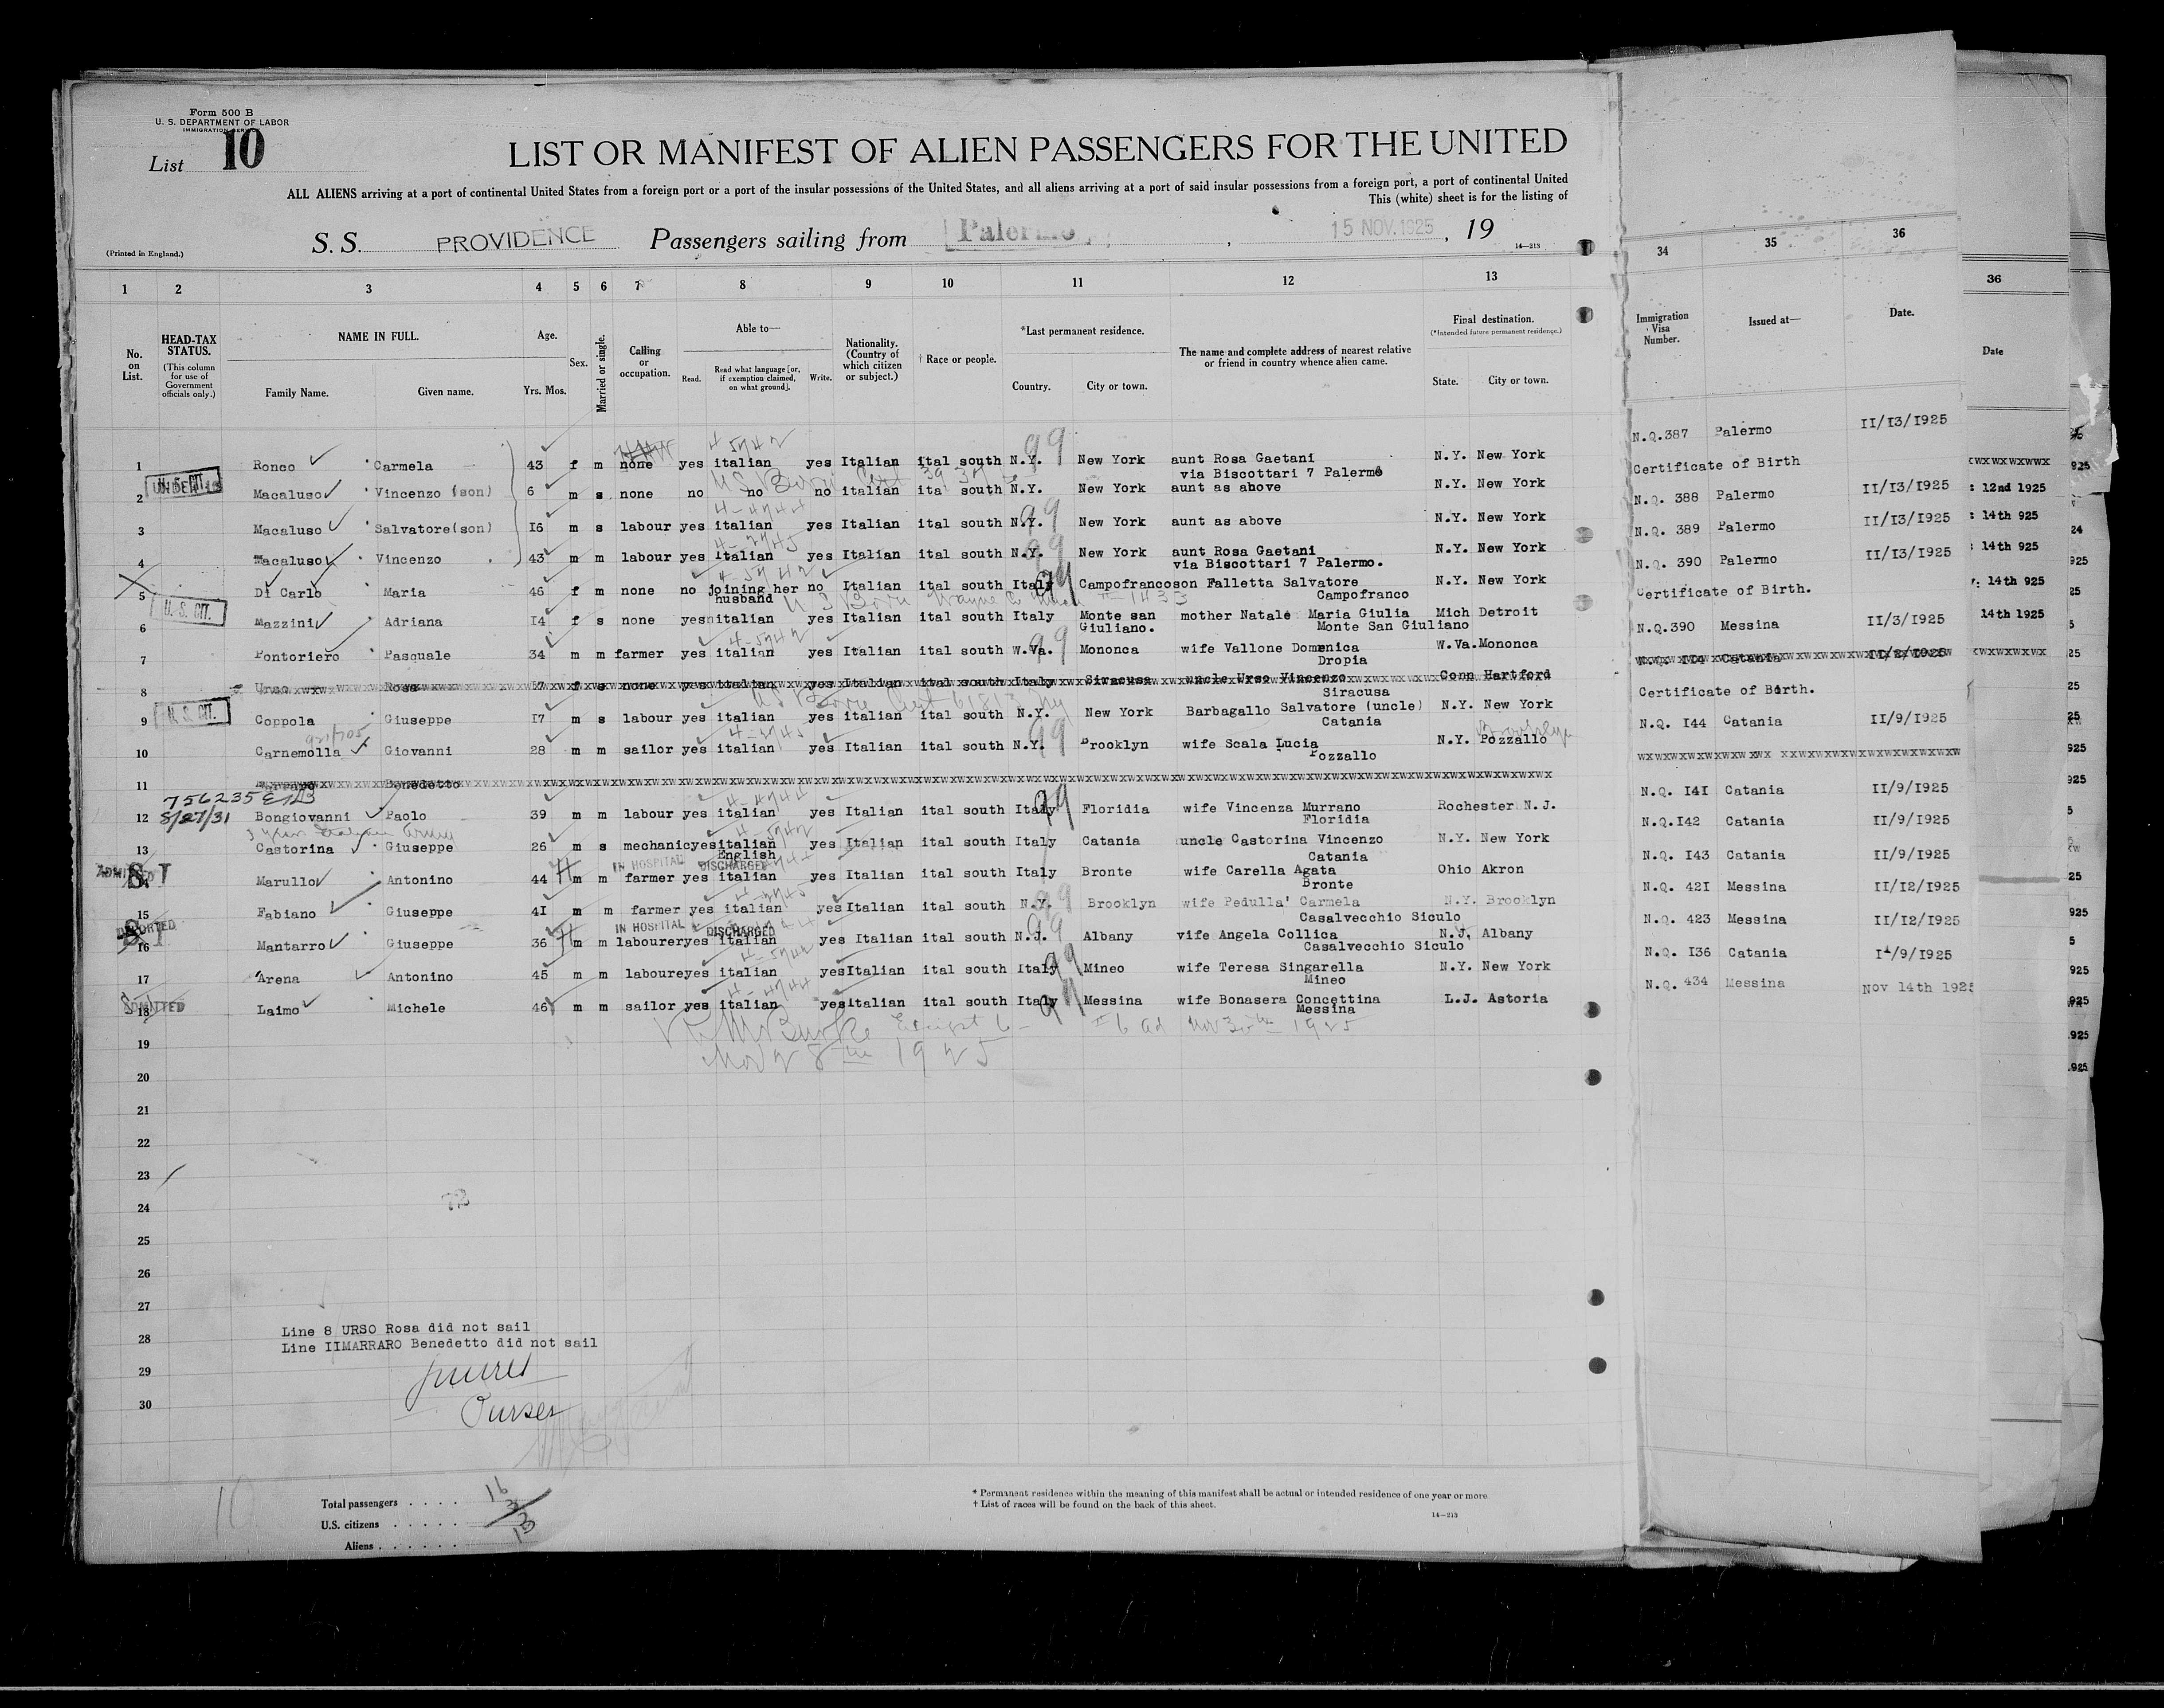 Form 500 B
U. S. DEPARTMENT OF LABOR
IMMIGRATION SERVICE
List 10
LIST OR MANIFEST OF ALIEN PASSENGERS FOR THE UNITED
ALL ALIENS arriving at a port of continental United States from a foreign port or a port of the insular possessions of the United States, and all aliens arriving at a port of said insular possessions from a foreign port, a port of continental United
This (white) sheet is for the listing of
(Printed in England.)
S. S. PROVIDENCE Passengers sailing from Palermo, 15 NOV. 1925, 19
14—213
1 2 3 4 5 6 7 8 9 10 11 12 13 34 35 36
No. on List.
HEAD-TAX STATUS.
(This column for use of Government officials only.)
NAME IN FULL.
Family Name. Given name.
Age.
Yrs. Mos.
Sex.
Married or single.
Calling or occupation.
Able to—
Read. Read what language [or, if exemption claimed, on what ground]. Write.
Nationality. (Country of which citizen or subject.)
† Race or people.
*Last permanent residence.
Country. City or town.
The name and complete address of nearest relative or friend in country whence alien came.
Final destination.
(*Intended future permanent residence.)
State. City or town.
Immigration Visa Number.
Issued at—
Date.
36
Date
1 Ronco Carmela 43 f m none yes italian yes Italian ital south N.Y. New York aunt Rosa Gaetani N.Y. New York N.Q.387 Palermo II/I3/I925
via Biscottari 7 Palermo
2 U. S. CIT. Macaluso Vincenzo (son) 6 m s none no no no italian ital south N.Y. New York aunt as above N.Y. New York Certificate of Birth
3 Macaluso Salvatore(son) I6 m s labour yes italian yes Italian ital south N.Y. New York aunt as above N.Y. New York N.Q. 388 Palermo II/I3/I925
4 Macaluso Vincenzo 43 m m labour yes italian yes Italian ital south N.Y. New York aunt Rosa Gaetani N.Y. New York N.Q. 389 Palermo II/I3/I925
via Biscottari 7 Palermo.
5 Di Carlo Maria 46 f m none no joining her no Italian ital south Italy Campofranco son Falletta Salvatore N.Y. New York N.Q. 390 Palermo II/I3/I925
husband Campofranco
6 U. S. CIT. Mazzini Adriana I4 f s none yes italian yes Italian ital south Italy Monte san mother Natale Maria Giulia Mich Detroit Certificate of Birth.
Giuliano. Monte San Giuliano
7 Pontoriero Pasquale 34 m m farmer yes italian yes Italian ital south W.Va. Mononca wife Vallone Domenica W.Va. Mononca N.Q.390 Messina II/3/I925
Dropia
8 Urso Rosa f s none yes italian yes Italian ital south Italy Siracusa uncle Urso Vincenzo Conn Hartford Catania II/2/I925
Siracusa
9 U. S. CIT. Coppola Giuseppe I7 m s labour yes italian yes italian ital south N.Y. New York Barbagallo Salvatore (uncle) N.Y. New York Certificate of Birth.
Catania
10 Carnemolla Giovanni 28 m m sailor yes italian yes Italian ital south N.Y. Brooklyn wife Scala Lucia N.Y. Pozzallo Brooklyn N.Q. I44 Catania II/9/I925
Pozzallo
11 Benedetto
756235
8/27/31
12 Bongiovanni Paolo 39 m m labour yes italian yes Italian ital south Italy Floridia wife Vincenza Murrano Rochester N.J. N.Q. I4I Catania II/9/I925
Floridia
13 Castorina Giuseppe 26 m s mechanic yes italian yes Italian ital south Italy Catania uncle Castorina Vincenzo N.Y. New York N.Q.I42 Catania II/9/I925
English Catania
IN HOSPITAL DISCHARGED
ADMITTED S.I
14 Marullo Antonino 44 m m farmer yes italian yes Italian ital south Italy Bronte wife Carella Agata Ohio Akron N.Q. I43 Catania II/9/I925
Bronte
15 Fabiano Giuseppe 4I m m farmer yes italian yes Italian ital south N.Y. Brooklyn wife Pedulla' Carmela N.Y. Brooklyn N.Q. 42I Messina II/I2/I925
Casalvecchio Siculo
IN HOSPITAL DISCHARGED
DEPORTED S I
16 Mantarro Giuseppe 36 m m labourer yes italian yes Italian ital south N.J. Albany vife Angela Collica N.J. Albany N.Q. 423 Messina II/I2/I925
Casalvecchio Siculo
17 Arena Antonino 45 m m laboure yes italian yes Italian ital south Italy Mineo wife Teresa Singarella N.Y. New York N.Q. I36 Catania II/9/I925
Mineo
ADMITTED
18 Laimo Michele 46 m m sailor yes italian yes italian ital south Italy Messina wife Bonasera Concettina L.J. Astoria N.Q. 434 Messina Nov 14th 1925
Messina
Nov 28th 1925
Nov 30th 1925
19
20
21
22
23
24
73
25
26
27
28
29
30
Line 8 URSO Rosa did not sail
Line IIMARRARO Benedetto did not sail
Purser
10
Total passengers . . . . 16
U.S. citizens . . . . . 3
Aliens . . . . . . 13
* Permanent residence within the meaning of this manifest shall be actual or intended residence of one year or more.
† List of races will be found on the back of this sheet.
14—213